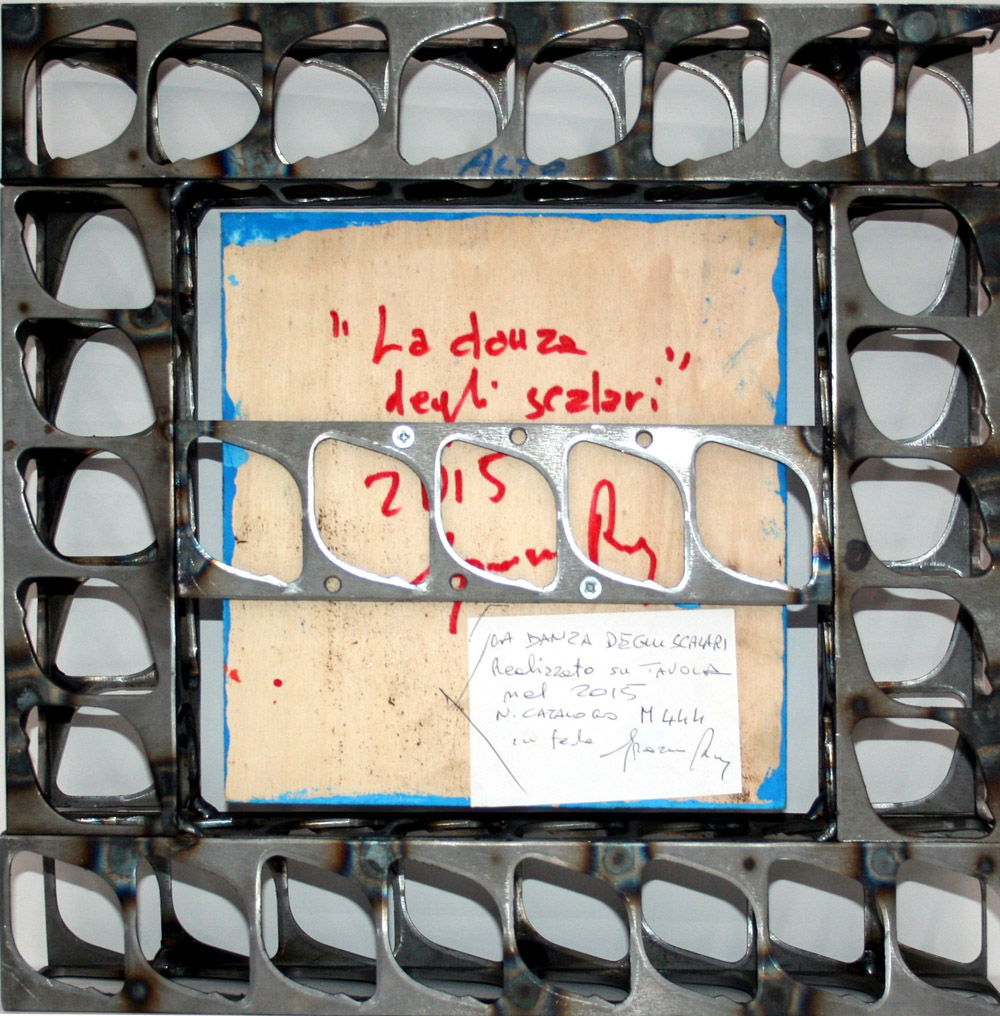 ALTO
" La danza
degli scalari "
2015
LA DANZA DEGLI SCALARI
Realizzato su TAVOLA
nel 2015
N. CATALOGO M444
in fede